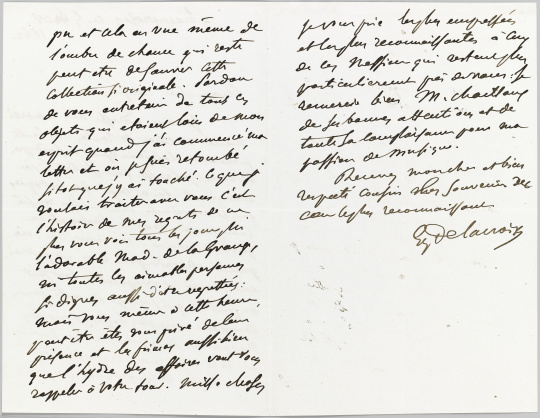 peu et cela en vue même de
l'ombre de chance qui reste
peut être de sauver cette
collection si originale. Pardon
de vous entretenir de tous ces
objets qui étaient loin de mon
esprit quand j'ai commencé ma
lettre et où je suis retombé
sitot que j'y ai touché. Ce que je
voulais traiter avec vous c'est
l'histoire de mes regrets de ne
plus vous voir tous les jours, plus
l'adorable Mad. de la Grange,
ni toutes les aimables personnes
si dignes aussi d'être regrettées:
mais vous même à cette heure,
peut être êtes vous privé de leur
présence et les frimas aussi bien
que l'hydre des affaires vont vous
rappeler à votre tour. Mille choses
je vous prie les plus empressées
et les plus reconnaissantes à ceux
de ces Messieurs qui restent plus
particulièrement près de vous: je
remercie bien M. 
de ses bonnes attentions et de
toute sa complaisance pour ma
passion de musique.
Recevez mon cher et bien
respecté cousin mes souvenirs de
coeur les plus reconnaissants
Eg Delacroix